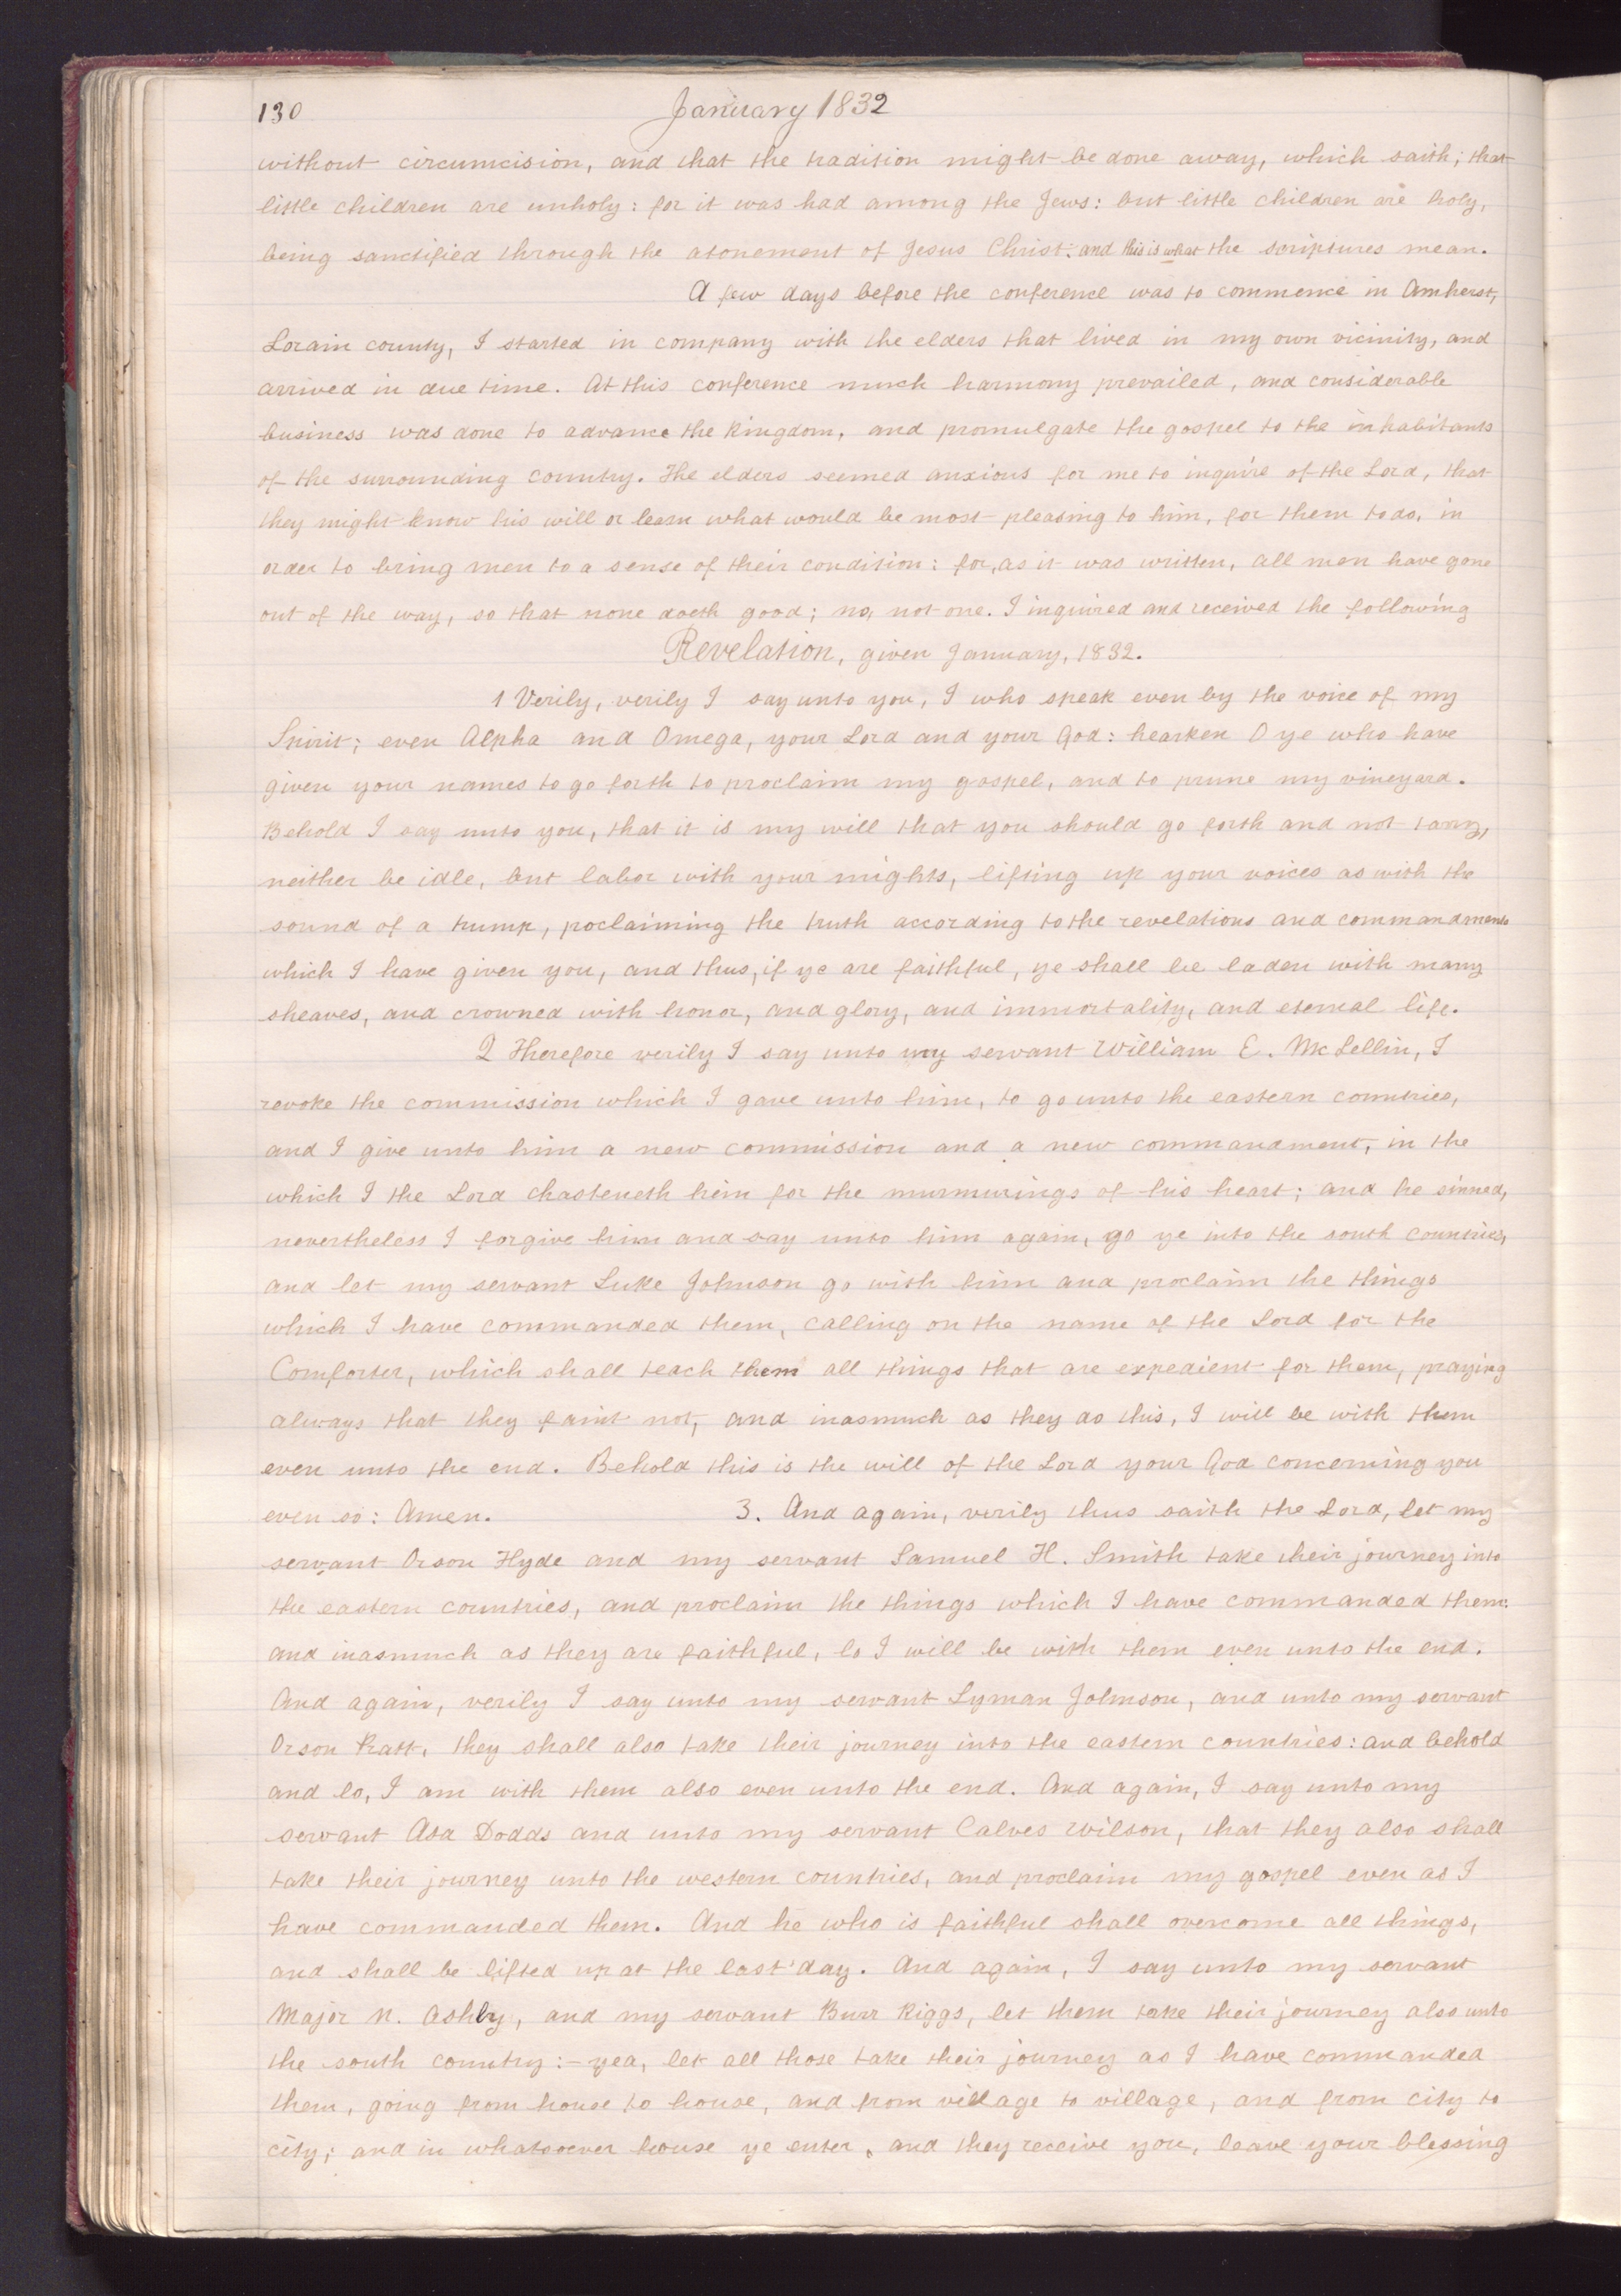 130 January 1832
without circumcision, and that the tradition might be done away, which saith; that
little children are unholy: for it was had among the Jews: but little children are holy,
being sanctified through the atonement of Jesus Christ: and this is what the scriptures mean.
A few days before the conference was to commence in Amherst,
Lorain county, I started in company with the elders that lived in my own vicinity, and
arrived in due time. At this conference much harmony prevailed, and considerable
business was done to advance the kingdom, and promulgate the gospel to the inhabitants
of the surrounding country. The elders seemed anxious for me to inquire of the Lord, that
they might know his will or learn what would be most pleasing to him, for them to do, in
order to bring men to a sense of their condition: for, as it was written, all men have gone
out of the way, so that none doeth good; no, not one. I inquired and received the following
Revelation, given January, 1832.
1 Verily, verily I say unto you, I who speak even by the voice of my
Spirit; even Alpha and Omega, your Lord and your God: hearken O ye who have
given your names to go forth to proclaim my gospel, and to prune my vineyard.
Behold I say unto you, that it is my will that you should go forth and not tarry,
neither be idle, but labor with your mights, lifting up your voices as with the
sound of a trump, proclaiming the truth according to the revelations and commandments
which I have given you, and thus, if ye are faithful, ye shall be laden with many
sheaves, and crowned with honor, and glory, and immortality, and eternal life.
2 Therefore verily I say unto my servant William E. McLellin, I
revoke the commission which I gave unto him, to go unto the eastern countries,
and I give unto him a new commission and a new commandment, in the
which I the Lord chasteneth him for the murmurings of his heart; and he sinned,
nevertheless I forgive him and say unto him again, go ye into the south countries,
and let my servant Luke Johnson go with him and proclaim the things
which I have commanded them, calling on the name of the Lord for the
Comforter, which shall teach them all things that are expedient for them, praying
always that they faint not, and inasmuch as they do this, I will be with them
even unto the end. Behold this is the will of the Lord your God concerning you
even so: Amen. 3. And again, verily thus saith the Lord, let my
servant Orson Hyde and my servant Samuel H. Smith take their journey into
the eastern countries, and proclaim the things which I have commanded them:
and inasmuch as they are faithful, lo I will be with them even unto the end.
And again, verily I say unto my servant Lyman Johnson, and unto my servant
Orson Pratt, they shall also take their journey into the eastern countries: and behold
and lo, I am with them also even unto the end. And again, I say unto my
servant Asa Dodds and unto my servant Calves Wilson, that they also shall
take their journey unto the western countries, and proclaim my gospel even as I
have commanded them. And he who is faithful shall overcome all things,
and shall be lifted up at the last day. And again, I say unto my servant
Major N. Ashley, and my servant Burr Riggs, let them take their journey also unto
the south country:- yea, let all those take their journey as I have commanded
them, going from house to house, and from village to village, and from city to
city; and in whatsoever house ye enter, and they receive you, leave your blessing